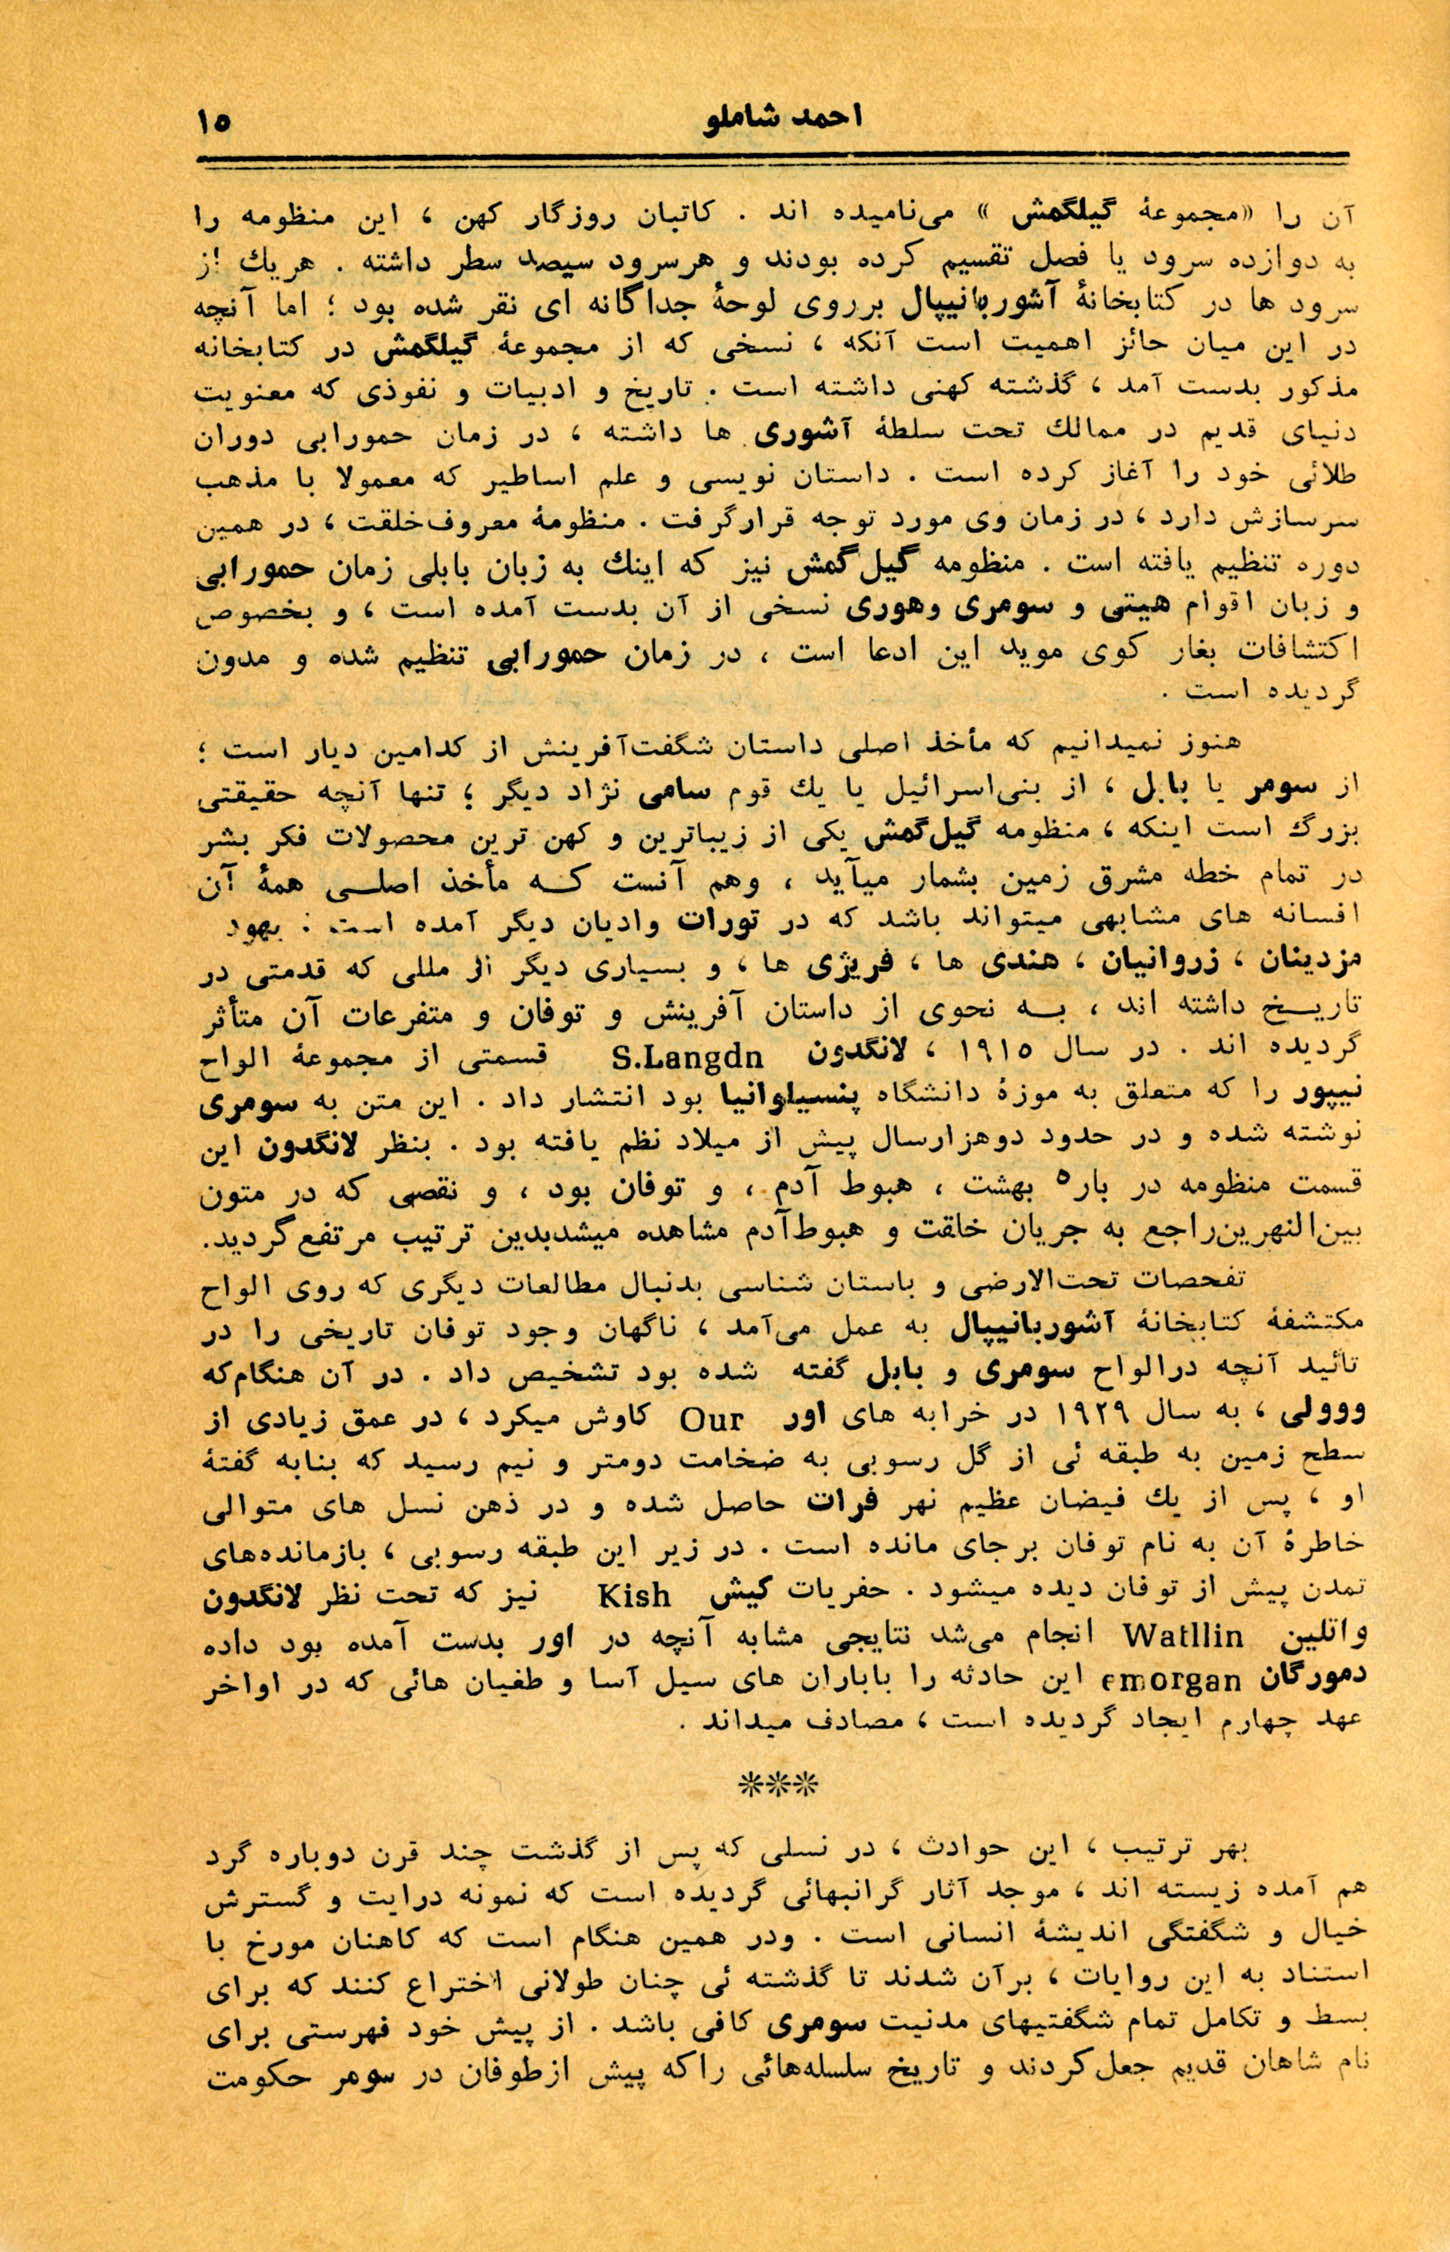 احمد شاملو
۱۵
آن را «مجموعهٔ گیلگمش» می‌نامیده اند . کاتبان روزگار کهن ، این منظومه را
به دوازده سرود یا فصل تقسیم کرده بودند و هرسرود سیصد سطر داشته . هریك از
سرود ها در کتابخانهٔ آشوربانیپال برروی لوحهٔ جداگانه ای نقر شده بود ؛ اما آنچه
در این میان حائز اهمیت است آنکه ، نسخی که از مجموعهٔ گیلگمش در کتابخانه
مذکور بدست آمد ، گذشته کهنی داشته است . تاریخ و ادبیات و نفوذی که معنویت
دنیای قدیم در ممالك تحت سلطهٔ آشوری ها داشته ، در زمان حمورابی دوران
طلائی خود را آغاز کرده است . داستان نویسی و علم اساطیر که معمولا با مذهب
سرسازش دارد ، در زمان وی مورد توجه قرارگرفت . منظومهٔ معروف‌خلقت ، در همین
دوره تنظیم یافته است . منظومه گیل‌گمش نیز که اینك به زبان بابلی زمان حمورابی
و زبان اقوام هیتی و سومری وهوری نسخی از آن بدست آمده است ، و بخصوص
اکتشافات بغار کوی موید این ادعا است ، در زمان حمورابی تنظیم شده و مدون
گردیده است .
هنوز نمیدانیم که مأخذ اصلی داستان شگفت‌آفرینش از کدامین دیار است ؛
از سومر یا بابل ، از بنی‌اسرائیل یا یك قوم سامی نژاد دیگر ؛ تنها آنچه حقیقتی
بزرگ است اینکه ، منظومه گیل‌گمش یکی از زیباترین و کهن ترین محصولات فکر بشر
در تمام خطه مشرق زمین بشمار میآید ، وهم آنست کـه مأخذ اصلـی همهٔ آن
افسانه های مشابهی میتواند باشد که در تورات وادیان دیگر آمده است : یهود
مزدینان ، زروانیان ، هندی ها ، فریژی ها ، و بسیاری دیگر از مللی که قدمتی در
تاریـخ داشته اند ، بـه نحوی از داستان آفرینش و توفان و متفرعات آن متأثر
گردیده اند . در سال ۱۹۱۵ ، لانگدون S.Langdn قسمتی از مجموعهٔ الواح
نیپور را که متعلق به موزهٔ دانشگاه پنسیلوانیا بود انتشار داد . این متن به سومری
نوشته شده و در حدود دوهزارسال پیش از میلاد نظم یافته بود . بنظر لانگدون این
قسمت منظومه در باره بهشت ، هبوط آدم ، و توفان بود ، و نقصی که در متون
بین‌النهرین‌راجع به جریان خلقت و هبوط‌آدم مشاهده میشدبدین ترتیب مرتفع‌گردید.
تفحصات تحت‌الارضی و باستان شناسی بدنبال مطالعات دیگری که روی الواح
مکتشفهٔ کتابخانهٔ آشوربانیپال به عمل می‌آمد ، ناگهان وجود توفان تاریخی را در
تائید آنچه درالواح سومری و بابل گفته شده بود تشخیص داد . در آن هنگام‌که
ووولی ، به سال ۱۹۲۹ در خرابه های اور Our کاوش میکرد ، در عمق زیادی از
سطح زمین به طبقه ئی از گل رسوبی به ضخامت دومتر و نیم رسید که بنابه گفتهٔ
او ، پس از یك فیضان عظیم نهر فرات حاصل شده و در ذهن نسل های متوالی
خاطرهٔ آن به نام توفان برجای مانده است . در زیر این طبقه رسوبی ، بازمانده‌های
تمدن پیش از توفان دیده میشود . حفریات کیش Kish نیز که تحت نظر لانگدون
واتلین Watllin انجام می‌شد نتایجی مشابه آنچه در اور بدست آمده بود داده
دمورگان emorgan این حادثه را باباران های سیل آسا و طغیان هائی که در اواخر
عهد چهارم ایجاد گردیده است ، مصادف میداند .
***
بهر ترتیب ، این حوادث ، در نسلی که پس از گذشت چند قرن دوباره گرد
هم آمده زیسته اند ، موجد آثار گرانبهائی گردیده است که نمونه درایت و گسترش
خیال و شگفتگی اندیشهٔ انسانی است . ودر همین هنگام است که کاهنان مورخ با
استناد به این روایات ، برآن شدند تا گذشته ئی چنان طولانی اختراع کنند که برای
بسط و تکامل تمام شگفتیهای مدنیت سومری کافی باشد . از پیش خود فهرستی برای
نام شاهان قدیم جعل‌کردند و تاریخ سلسله‌هائی راکه پیش ازطوفان در سومر حکومت